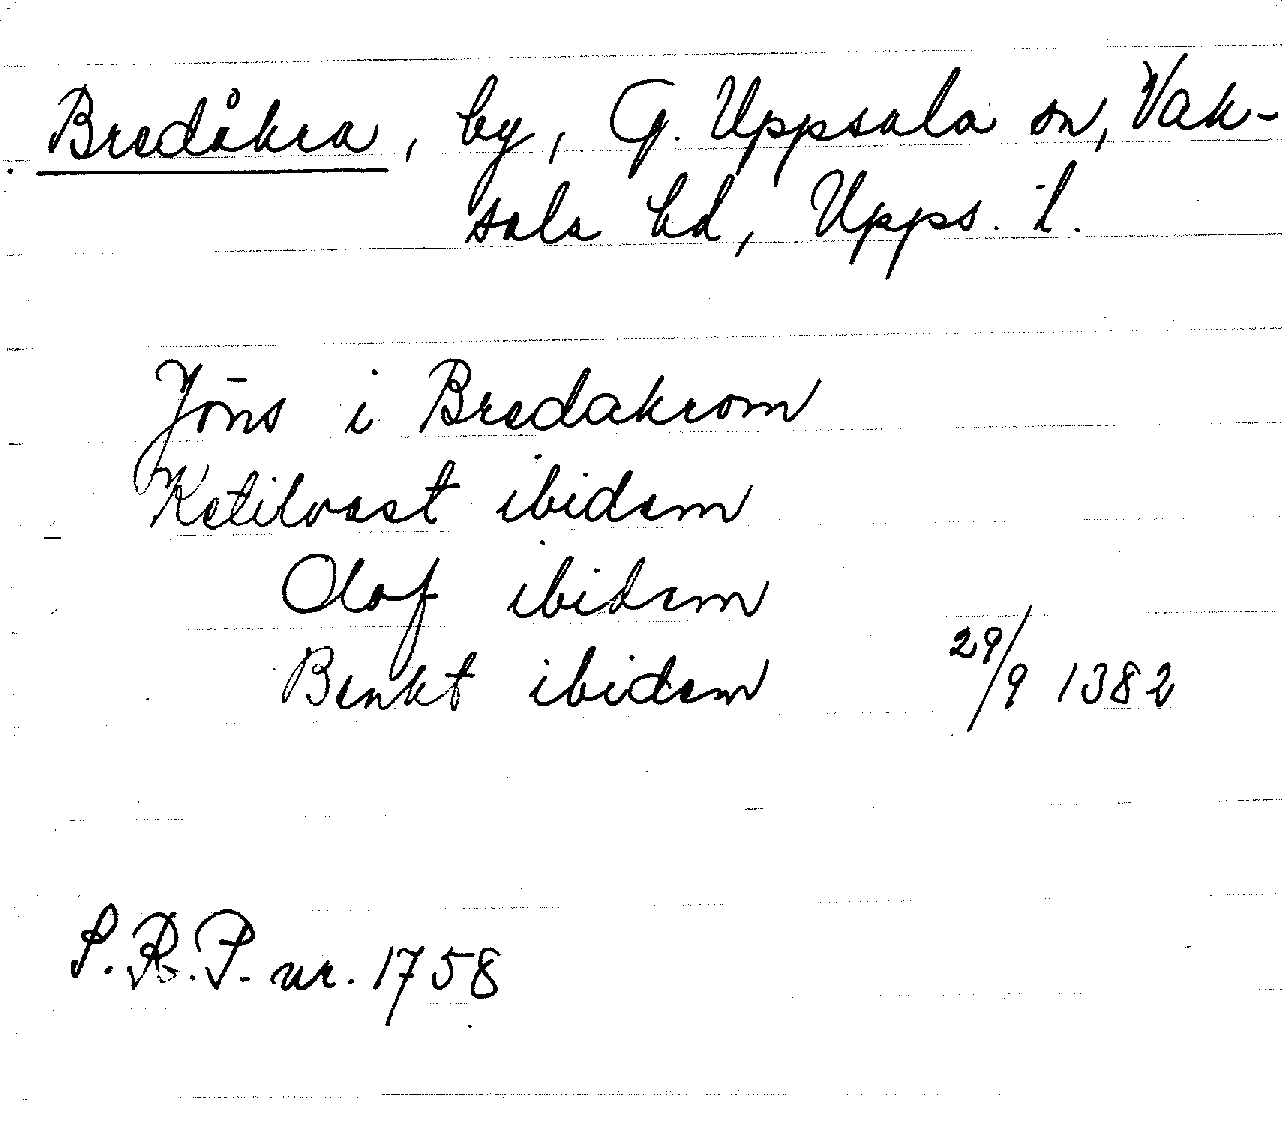 Bredåkra, by, G. Uppsala sn, Vak-
sala hd, Upps. l.
Jōns i Bredakrom
Ketilvast ibidem
Olof ibidem
Benkt ibidem 29/9 1382
S.R.P. nr. 1758